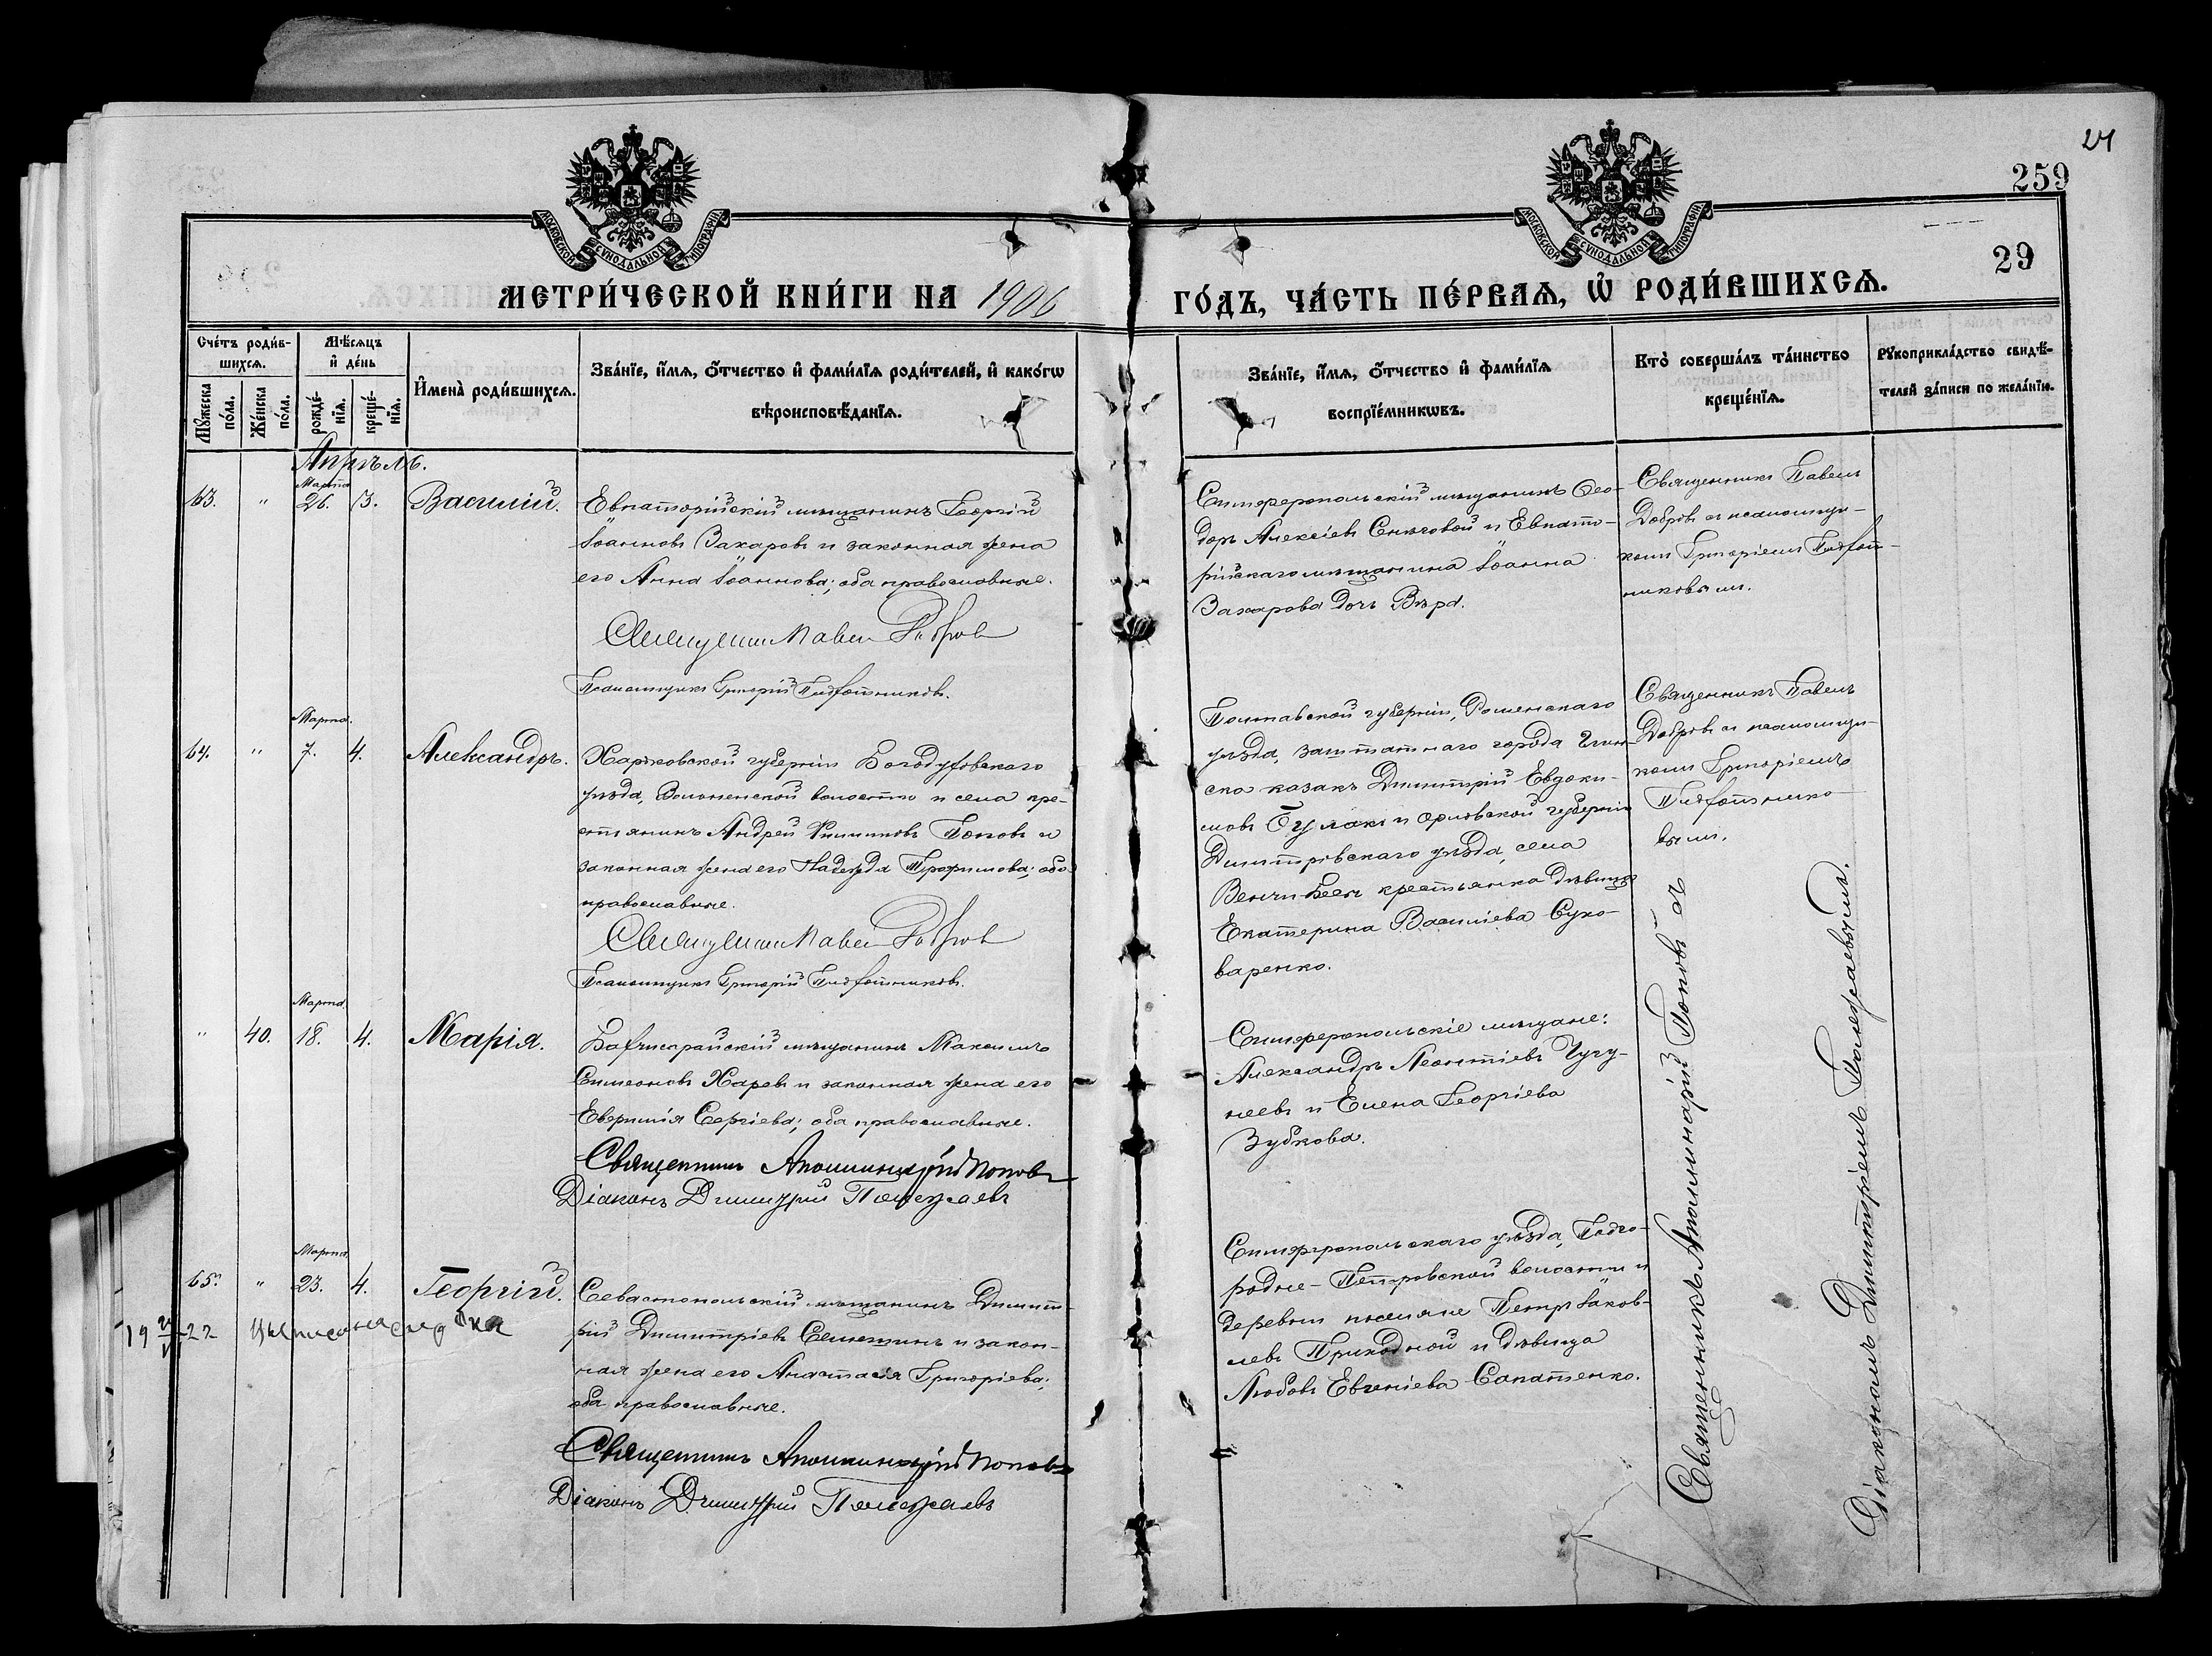 24
259
29
МОСКОВСКОЙ СѴНОДАЛЬНОЙ ТИПОГРАФІИ
МОСКОВСКОЙ СѴНОДАЛЬНОЙ ТИПОГРАФІИ
МЕТРИ́ЧЕСКОЙ КНИ́ГИ НА 1906 ГО́ДЪ, ЧА́СТЬ ПЕ́РВАѦ, Ѡ҆ РОДИ́ВШИХСѦ.
Сче́тъ роди́в-
шихсѧ.
Мꙋ́жеска
по́ла.
Же́нска
по́ла.
Мѣ́сѧцъ
и҆ де́нь
рожде́-
нїѧ.
креще́-
нїѧ.
И҆мена̀ роди́вшихсѧ.
Зва́нїе, и҆́мѧ, ѻ҆́тчество и҆ фами́лїѧ роди́телей, и҆ како́гѡ
вѣроисповѣ́данїѧ.
Зва́нїе, и҆́мѧ, ѻ҆́тчество и҆ фами́лїѧ
воспрїе́мникѡвъ.
Кто̀ соверша́лъ та́инство
креще́нїѧ.
Рꙋкоприкла́дство свидѣ́-
телей за́писи по жела́нїю.
Апрѣль.
Марта
63. " 26. 3. Василій.
Евпаторійскій мѣщанинъ Георгій
Іоанновъ Захаровъ и законная жена
его Анна Іоаннова; оба православные.
Священникъ Павелъ Добровъ
Псаломщикъ Григорій
Симферопольскій мѣщанинъ Ѳео-
доръ Алексіевъ Снѣговой и Евпато-
рійскаго мѣщанина Іоанна
Захарова дочь Вѣра.
Священникъ Павелъ
Добровъ съ псаломщи-
комъ Григоріемъ
никовымъ.
Марта.
64. " 7. 4. Александръ.
Харьковской губерніи Богодуховскаго
уѣзда, волости и села кре-
стьянинъ Андрей Филипповъ Поповъ и
законная жена его Надежда Трофимова; оба
православные.
Священникъ Павелъ Добровъ
Псаломщикъ Григорій
Полтавской губерніи, Роменскаго
уѣзда, заштатнаго города Глин-
ска казакъ Димитрій Евдоки-
мовъ Булахъ и Орловской губерніи
Димитровскаго уѣзда, села
крестьянка дѣвица
Екатерина Василіева Сухо-
варенко.
Священникъ Павелъ
Добровъ съ псаломщи-
комъ Григоріемъ
вымъ.
Марта
" 40. 18. 4. Марія.
Бахчисарайскій мѣщанинъ Максимъ
Симеоновъ Харевъ и законная жена его
Евфимія Сергіева; оба православные.
Священникъ Аполлинарій Поповъ
Діаконъ Димитрій Полежаевъ
Симферопольскіе мѣщане:
Александръ Леонтіевъ Чугу-
неевъ и Елена Георгіева
Зубкова.
Марта
65. " 23. 4. Георгій.
Севастопольскій мѣщанинъ Димит-
рій Димитріевъ и закон-
ная жена его Анастасія Григоріева;
оба православные.
Священникъ Аполлинарій Поповъ
Діаконъ Димитрій Полежаевъ
Симферопольскаго уѣзда, Подго-
родне-Петровской волости и
деревни поселяне Петръ Іаков-
левъ Приходной и дѣвица
Любовь Евгеніева Сапатенко.
Священникъ Аполлинарій Поповъ съ
Діакономъ Димитріемъ Полежаевымъ.